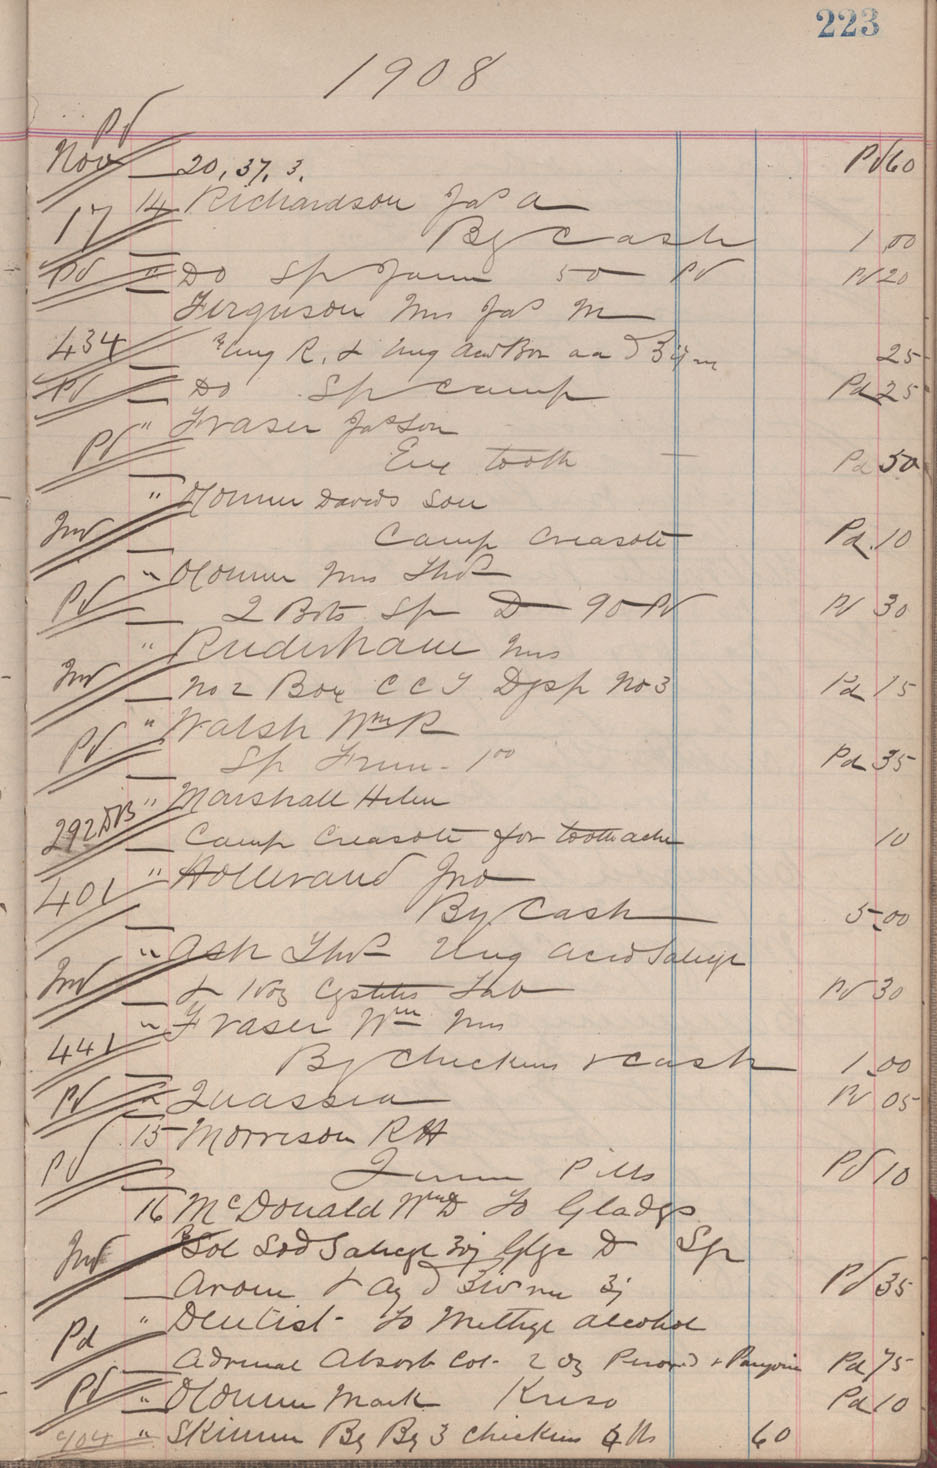 223
1908
Pd
Nov 20, 37, 3. Pd 60
14 Richardson Jas A
17 By Cash 1.00
Pd " Do Sp Frum 50 Pd Pd 20
Ferguson Mrs Jas M
434 Ung R. & Ung Acid Bor aa 25
Pd Do Sp Camp Pd 25
" Fraser Jas Son
Pd Eye tooth Pd 50
" Davids Son
Camp Creasote Pd. 10
" Mrs Thos
Pd 2 Bots Sp D 90 Pd Pd 30
" Ruderham Mrs
No 2 Box C C T Dysp No 3 Pd 15
" Walsh Wm R
Pd Sp Frum - 1 00 Pd 35
" Marshall Helen
292 DB Camp Creasote for toothache 10
" Hollerand Jno
401 By Cash 5.00
" Ash Thos Ung Acid Salicyl
& Tab Pd 30
" Fraser Wm Mrs
441 By Chickens & Cash 1.00
Pd " Quassia Pd 05
15 Morrison R H
Pd Pills Pd 10
16 McDonald Wm D To Gladys
Sol Sod Salicyl D Sp
Arom & Aq Pd 35
" Dentist - To Methyl alcohol
Pd Adrenal Absorb Cot - 2 oz Pd 75
Pd " Mark Pd 10
404 " Skinner By By 3 Chickens 60